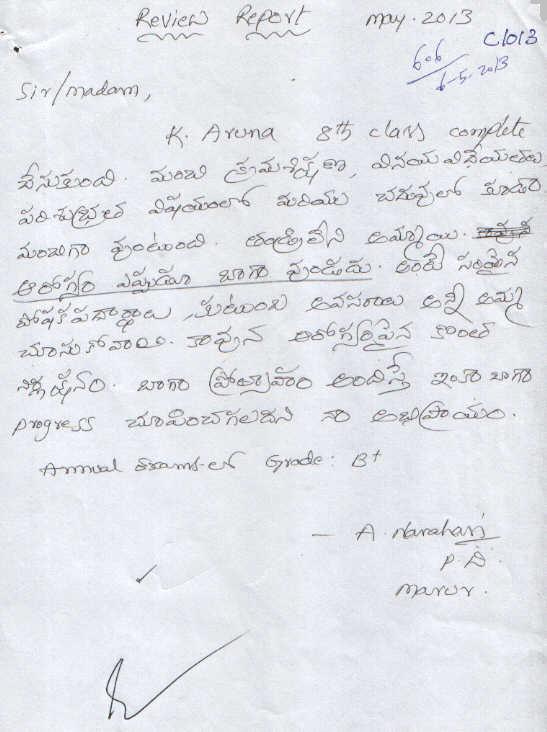 Review Report May. 2013
C1013
6-5-2013
Sir/madam,
K. Aruna 8th class complete
చేసుకుంది. మంచి క్రమశిక్షణ, వినయ విధేయతలు
పరిశుభ్రత విషయంలో మరియు చదువులో కూడా
మంచిగా వుంటుంది. తండ్రిలేని అమ్మాయి.
ఆరోగ్యం ఎప్పుడూ బాగా వుండదు. అంటే సరియైన
పోషక పదార్థాలు, కుటుంబ అవసరాలు అన్నీ అమ్మ
చూసుకోవాలి. కావున ఆరోగ్యంపైన కొంత
బాగా ప్రోత్సాహం అందిస్తే ఇంకా బాగా
progress చూపించగలదని నా అభిప్రాయం.
Annual Exams-లో Grade: B+
- A. Narahari
P.D.
Marur.